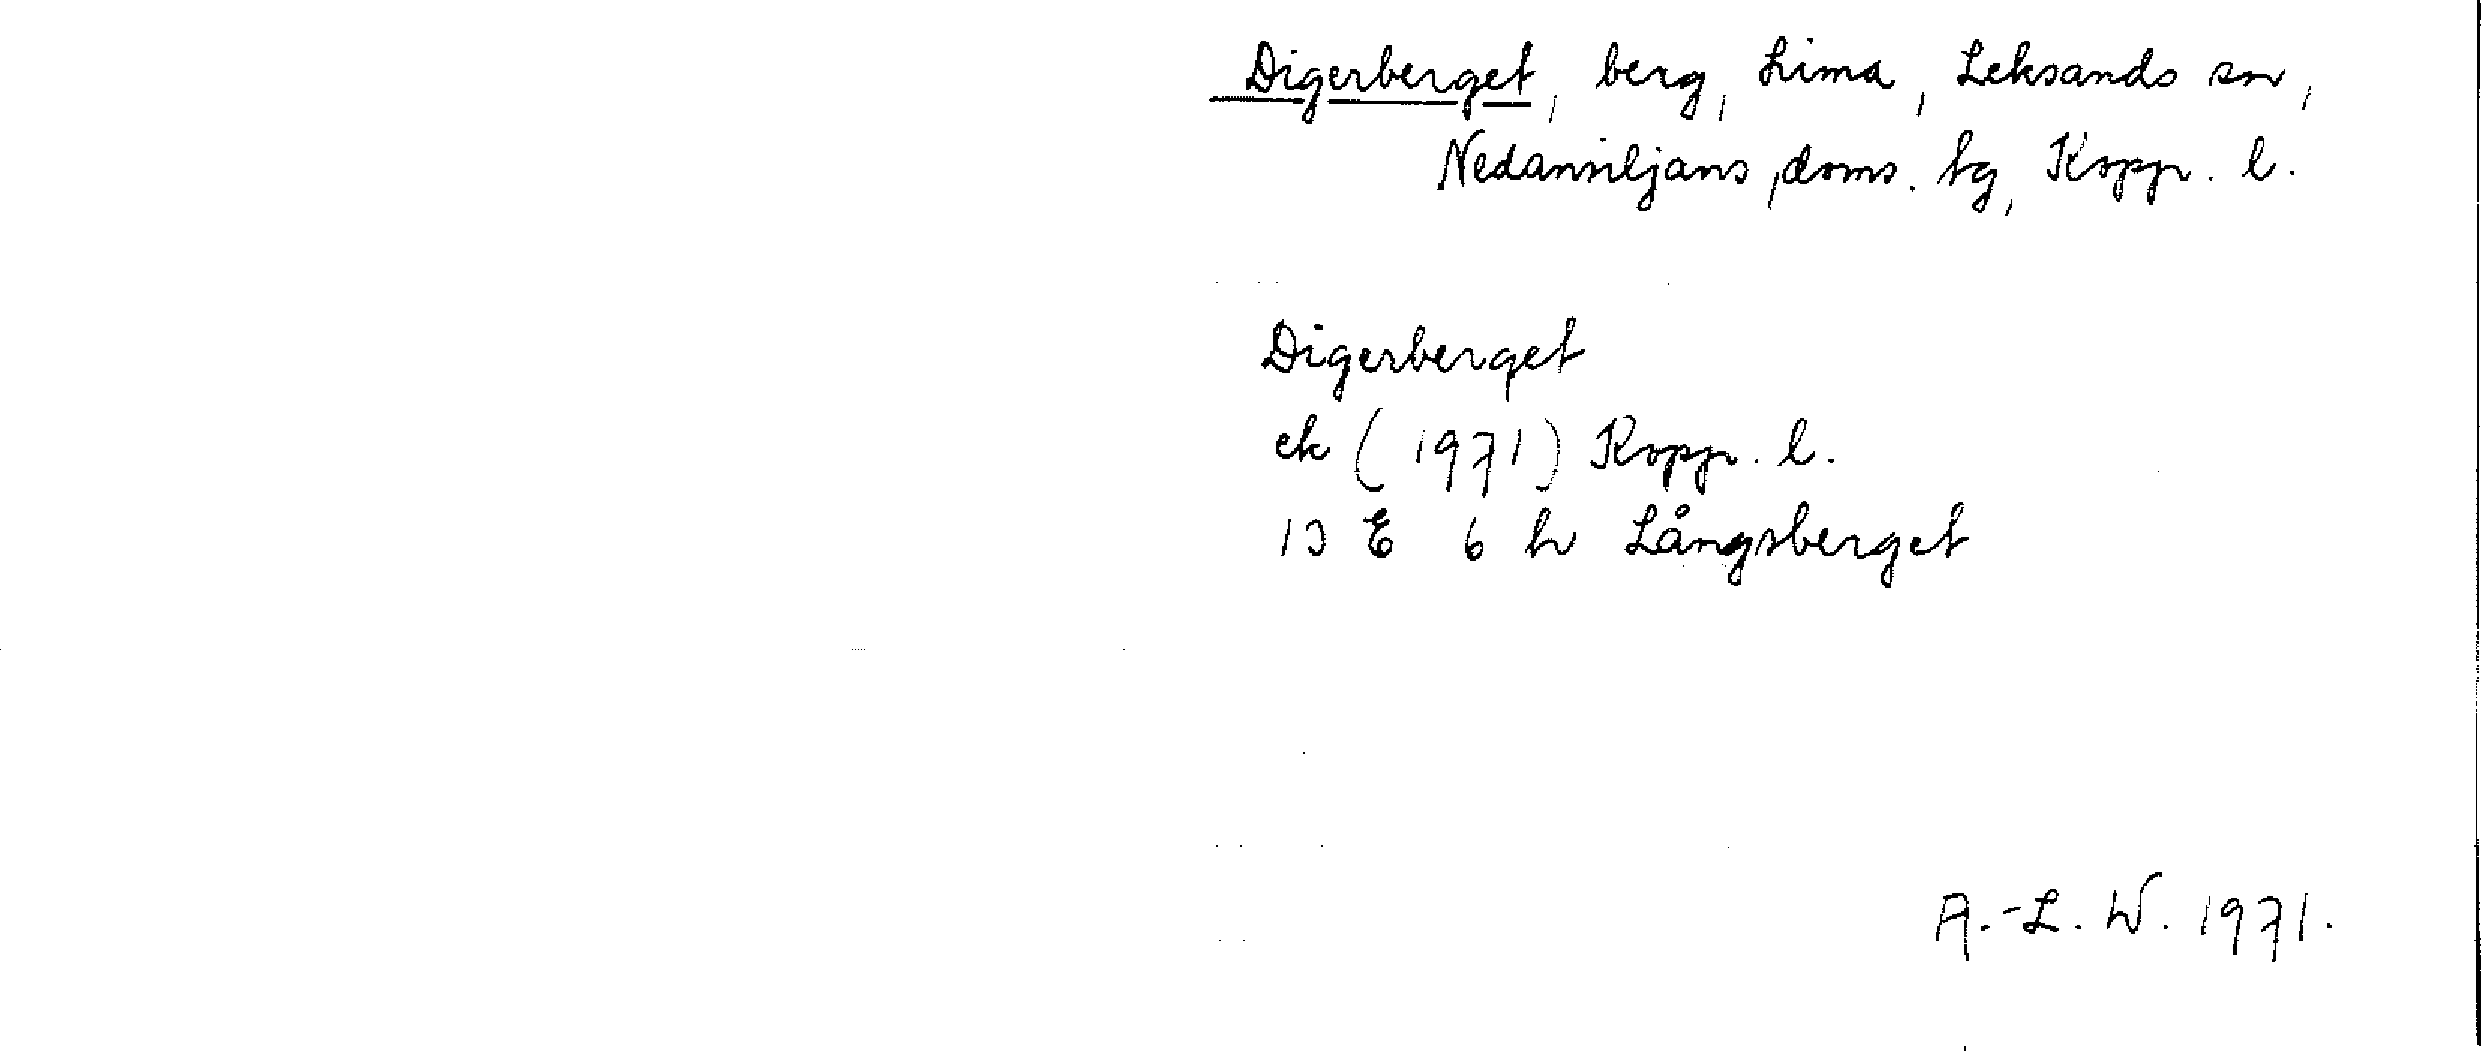 Digerberget, berg, Lima, Leksands sn,
Nedansiljans doms. tg, Kopp. l.
Digerberget
ek (1971) Kopp. l.
13 E 6 h Långsberget
A.-L. W. 1971.